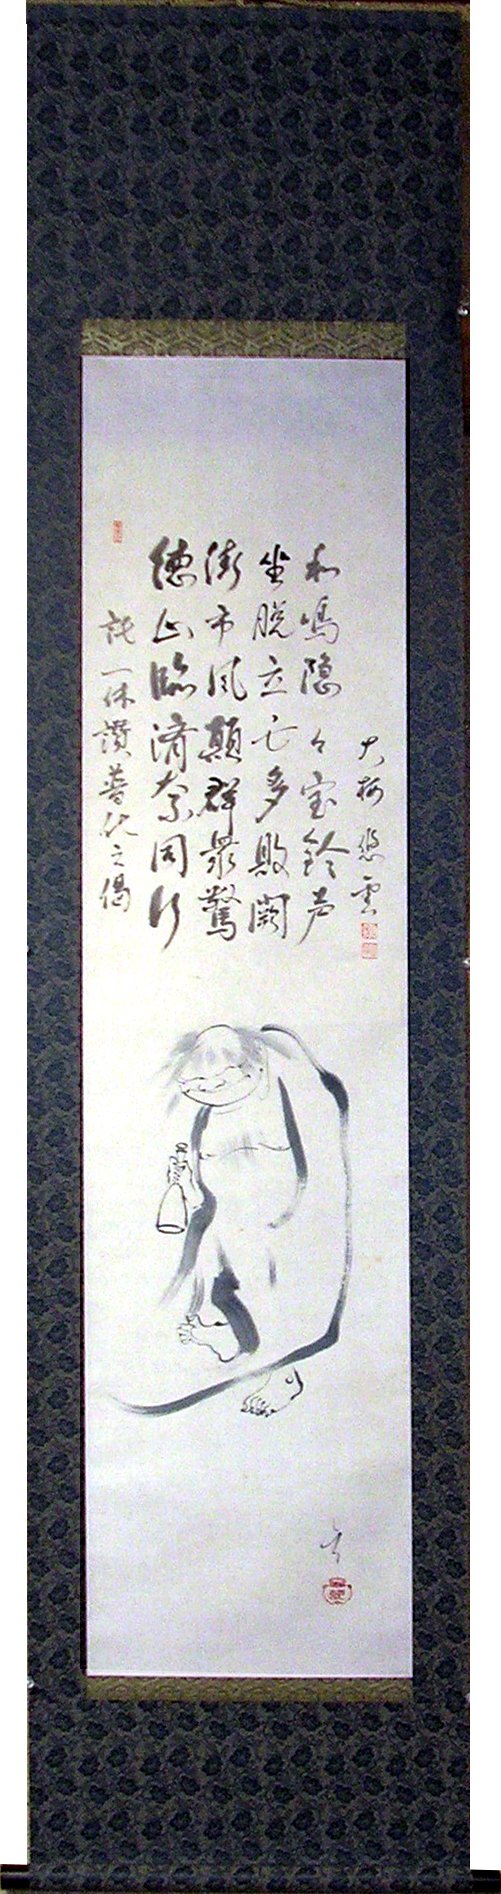 託一休讃普化之偈
徳山臨済奈同行
街市風顛群衆驚
坐脱立亡多敗闕
和鳴隠々宝鈴声
大梅悠雲